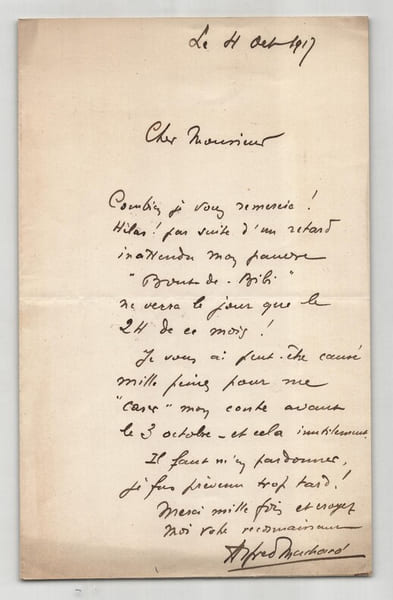 Le 4 Oct 1917
Cher Monsieur
Combien je vous remercie !
Hélas ! par suite d'un retard
inattendu mon pauvre
"Bout-de-Bibi"
ne verra le jour que le
24 de ce mois !
Je vous ai peut-être causé
mille peines pour me
"caser" mon conte avant
le 3 octobre - et cela inutilement.
Il faut m'en pardonner,
je fus prévenu trop tard !
Merci mille fois et croyez
moi votre reconnaissant
Alfred Machard